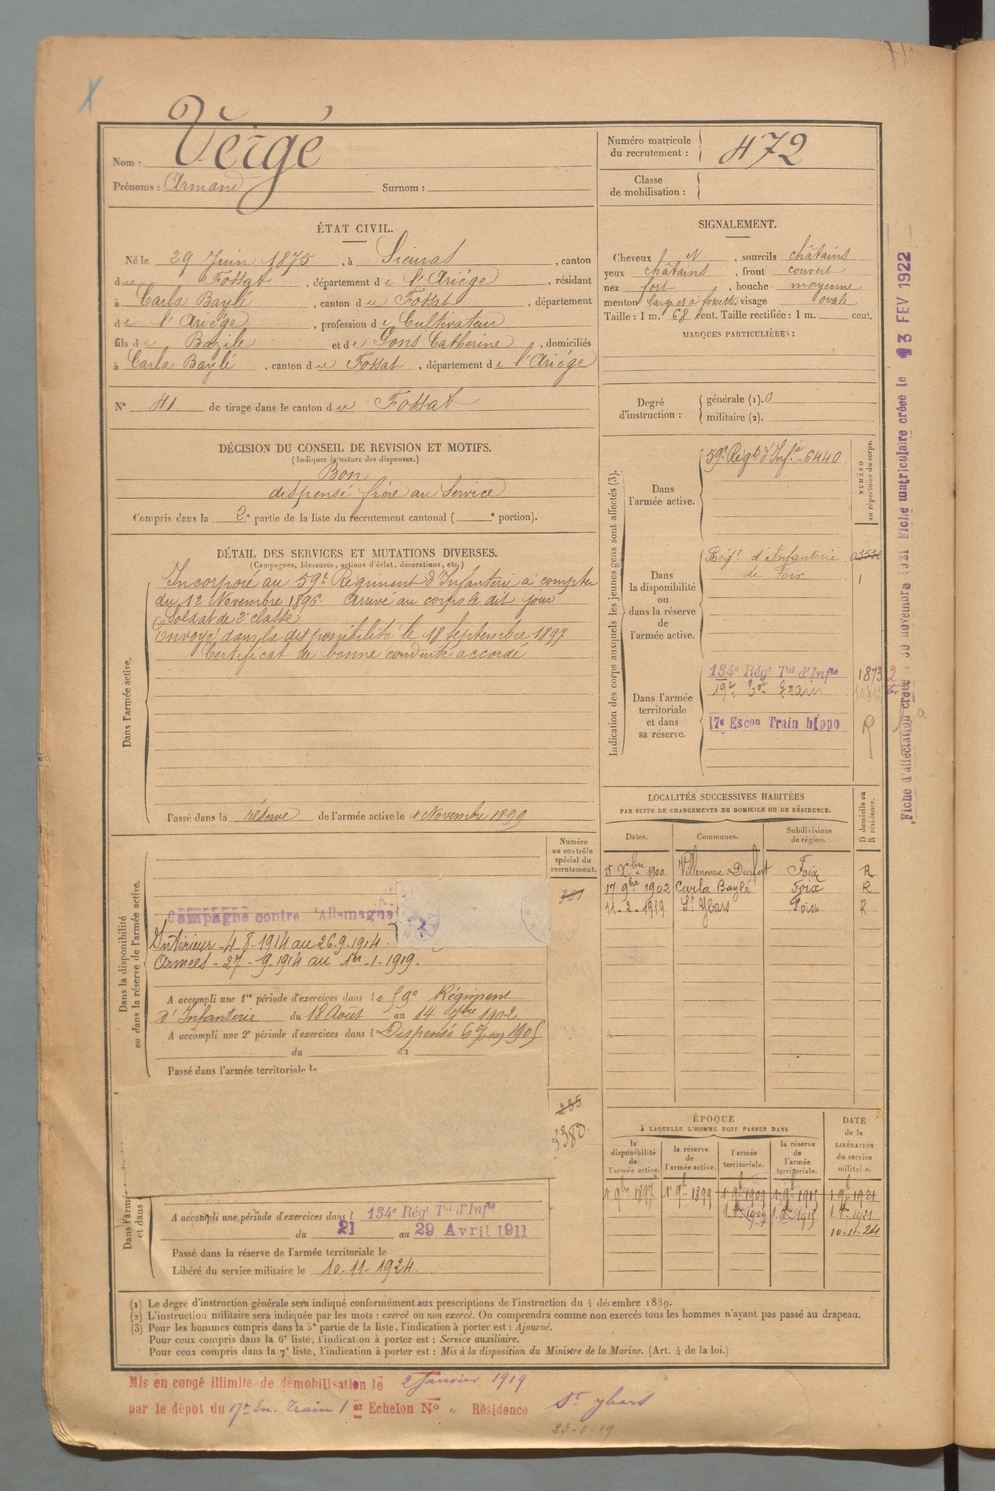 Nom : Vergé
Prénoms : Armand Surnom :
Numéro matricule du recrutement : 472
Classe de mobilisation :
ÉTAT CIVIL.
Né le 29 Juin 1875, à Sieuras, canton
de Fossat, département de l'Ariège, résidant
à Carla Bayle, canton de Fossat, département
de l'Ariège, profession de Cultivateur
fils de Bazile et de Gons Catherine, domiciliés
à Carla Bayle, canton de Fossat, département de l'Ariège
N° 41 de tirage dans le canton de Fossat
SIGNALEMENT.
Cheveux N, sourcils châtains
yeux châtains, front couvert
nez fort, bouche moyenne
menton large et à fossette, visage ovale
Taille : 1 m. 68 cent. Taille rectifiée : 1 m. cent.
MARQUES PARTICULIÈRES :
Degré d'instruction : générale (1). 0
militaire (2).
DÉCISION DU CONSEIL DE REVISION ET MOTIFS.
(Indiquer la nature des dispenses.)
Bon
dispensé frère au Service
Compris dans la 2e partie de la liste du recrutement cantonal ( e portion).
DÉTAIL DES SERVICES ET MUTATIONS DIVERSES.
(Campagnes, blessures, actions d'éclat, décorations, etc.)
Dans l'armée active.
Incorporé au 59e Régiment d'Infanterie à compter
du 12 Novembre 1896. Arrivé au corps le dit jour
Soldat de 2e classe
Envoyé dans la disponibilité le 18 Septembre 1897
Certificat de bonne conduite accordé
Passé dans la réserve de l'armée active le 1 Novembre 1899
Indication des corps auxquels les jeunes gens sont affectés (3).
NUMÉRO au répertoire du corps.
Dans l'armée active.
59e Régt d'Infie 6440
Dans la disponibilité ou dans la réserve de l'armée active.
Régt d'Infanterie
de Foix
Dans l'armée territoriale et dans sa réserve.
134e Régt Tal d'Infie 1873
19e Eon Train
17e Escon Train hippo R
LOCALITÉS SUCCESSIVES HABITÉES
PAR SUITE DE CHANGEMENTS DE DOMICILE OU DE RÉSIDENCE.
Dates. Communes. Subdivisions de région. D domicile ou R résidence.
5 Xbre 1900 Villeneuve Durfort Foix R
17 9bre 1902 Carla Bayle Foix R
11-2-1919 St Ybars Foix R
Dans la disponibilité ou dans la réserve de l'armée active.
Numéro au contrôle spécial du recrutement.
Campagne contre l'Allemagne
Intérieur - 4-8-1914 au 26-9-1914.
Armées - 27-9-1914 au 1er-1-1919.
A accompli une 1re période d'exercices dans le 59e Régiment
d'Infanterie du 18 Août au 14 7bre 1902.
A accompli une 2e période d'exercices dans l Dispensé 1905
du au
Passé dans l'armée territoriale le
A accompli une période d'exercices dans l 134e Régt Tal d'Infie
du 21 au 29 Avril 1911
Passé dans la réserve de l'armée territoriale le
Libéré du service militaire le 10-11-1924.
ÉPOQUE
À LAQUELLE L'HOMME DOIT PASSER DANS
la disponibilité de l'armée active. la réserve de l'armée active. l'armée territoriale. la réserve de l'armée territoriale. DATE de la LIBÉRATION du service militaire.
1 9bre 1897 1 9bre 1899 1 9bre 1909 1 9bre 1915 1 9bre 1921
1 8bre 1909 1 8bre 1915 1 8bre 1921
10-11-24
(1) Le degré d'instruction générale sera indiqué conformément aux prescriptions de l'instruction du 4 décembre 1889.
(2) L'instruction militaire sera indiquée par les mots : exercé ou non exercé. On comprendra comme non exercés tous les hommes n'ayant pas passé au drapeau.
(3) Pour les hommes compris dans la 5e partie de la liste, l'indication à porter est : Ajourné.
Pour ceux compris dans la 6e liste, l'indication à porter est : Service auxiliaire.
Pour ceux compris dans la 7e liste, l'indication à porter est : Mis à la disposition du Ministre de la Marine. (Art. 4 de la loi.)
Mis en congé illimité de démobilisation le 2 Janvier 1919
par le dépôt du 17e En. Train 1er Echelon N° " Résidence St Ybars
23-1-19
Fiche matriculaire créée le 13 FEV 1922